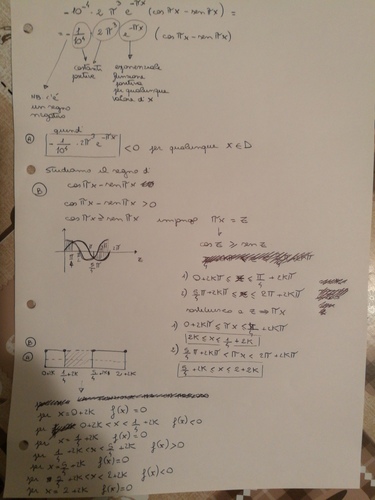 -10⁻⁶ · 2 π³ e^-πx (cos πx - sen πx) =
= - 1/10⁶ · 2π³ e^-πx (cos πx - sen πx)
costante positiva
esponenziale funzione positiva per qualunque valore di x
NB. c'è un segno negativo
quindi
A - 1/10⁶ · 2π³ e^-πx < 0 per qualunque x ∈ D
studiamo il segno di
B cos πx - sen πx
cos πx - sen πx > 0
cos πx ≥ sen πx impongo πx = z
cos z ≥ sen z
1) 0+2kπ ≤ z ≤ π/4 + 2kπ
2) 5/4 π + 2kπ ≤ z ≤ 2π + 2kπ
sostituisco z ⇒ πx
1) 0+2kπ ≤ πx ≤ π/4 + 2kπ
2k ≤ x ≤ 1/4 + 2k
2) 5/4 π + 2kπ ≤ πx ≤ 2π + 2kπ
5/4 + 2k ≤ x ≤ 2+2k
B
A
0+2k 1/4+2k 5/4+2k 2+2k
per x = 0+2k f(x) = 0
per 0+2k < x < 1/4 + 2k f(x) < 0
per x = 1/4 + 2k f(x) = 0
per 1/4 + 2k < x < 5/4 + 2k f(x) > 0
per x = 5/4 + 2k f(x) = 0
per 5/4 + 2k < x < 2+2k f(x) < 0
per x = 2+2k f(x) = 0